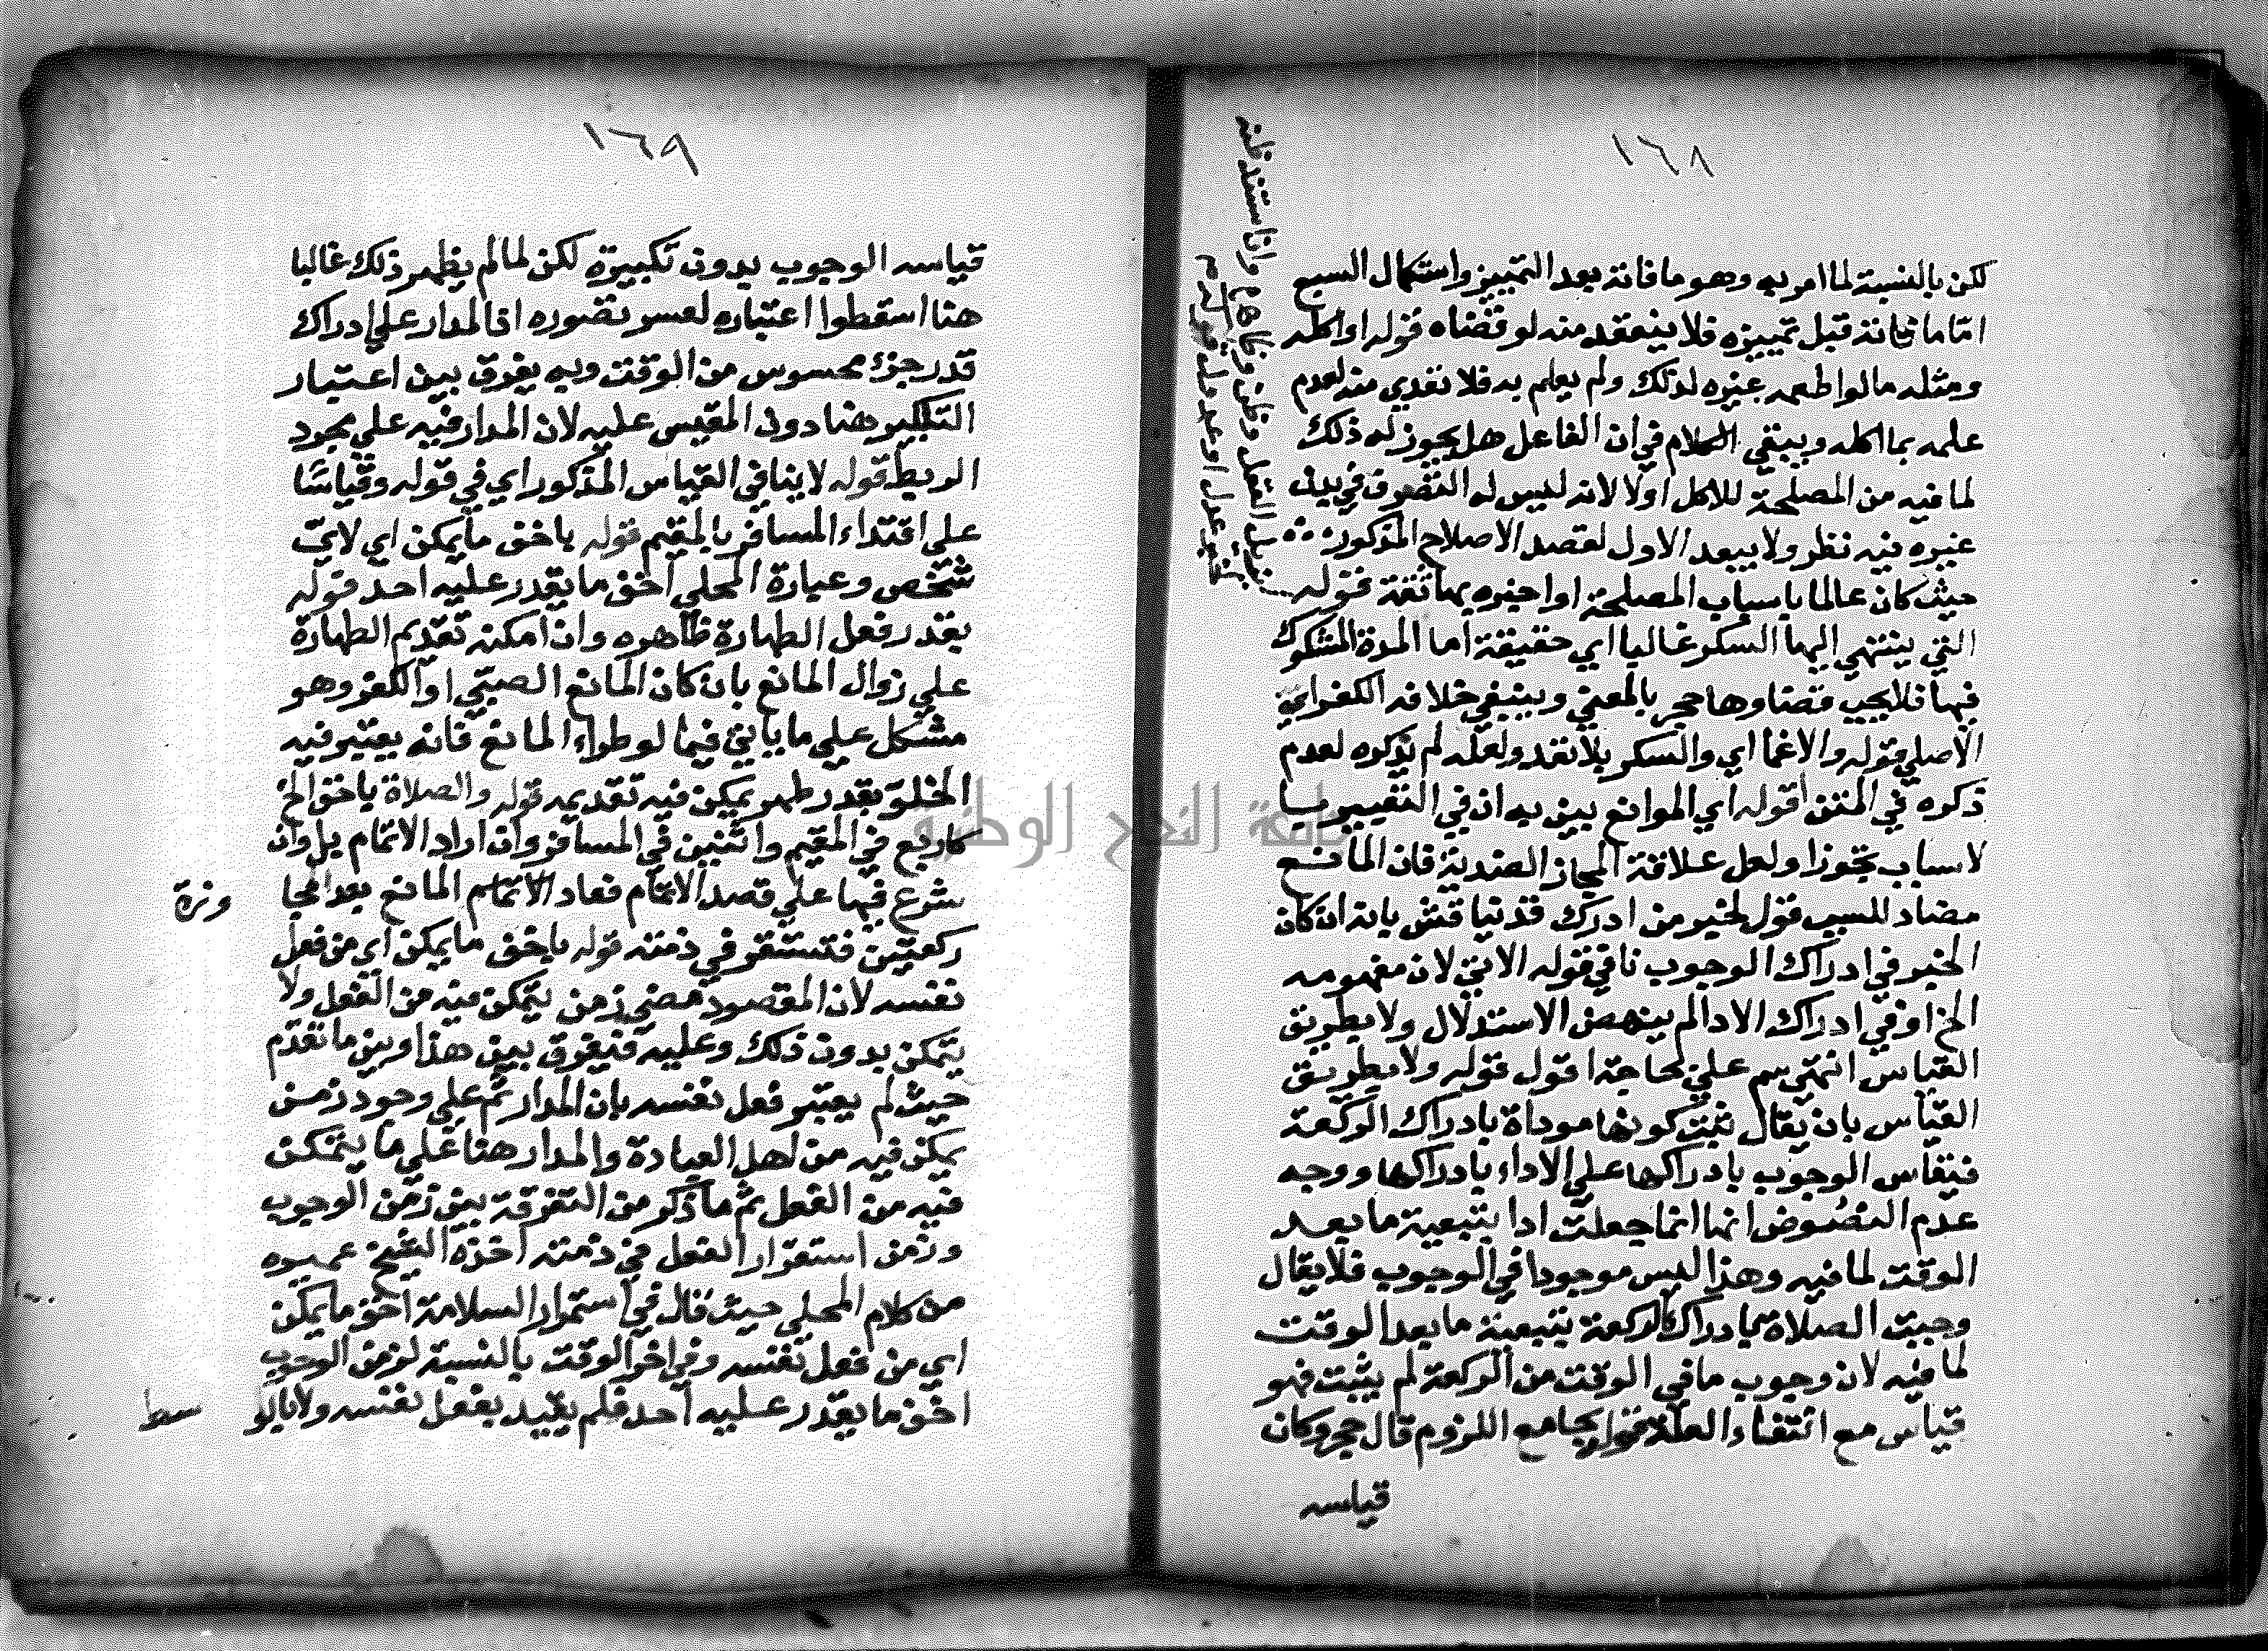 ١٦٨
لكن بالنسبة لما امر به وهو ما فاته بعد التمييز واستكمال السبع
امّا ما فاته قبل تمييزه فلا ينعقد منه لو قضاه قوله او اكله
ومثله ما لو اطعمه غيره لذلك ولم يعلم به فلا تعدي منه لعدم
علمه بما اكله ويبقي الكلام في ان الفاعل هل يجوز له ذلك
لما فيه من المصلحة للاكل او لا لانه ليس له التصرف في بدن
غيره فيه نظر ولا يبعد الاول لقصد الاصلاح المذكور
حيث كان عالما باسباب المصلحة او اخبره بها ثقة قوله
التي ينتهي اليها السكر غالبا اي حقيقة اما المدة المشكوك
فيها فلا يجب قضاوها حجر بالمعني وينبغي خلافه الكفر اي
الاصلي قوله والاغما اي والسكر بلا تعد ولعله لم يذكره لعدم
ذكره في المتن قوله اي الموانع بين به ان في التعبير با
لاسباب تجوزا ولعل علاقة المجاز الضدية فان المانع
مضاد للسبب قوله لخبر من ادرك قد يناقش بانه ان كان
الخبر في ادراك الوجوب نافي قوله الاتي لان مفهومه
الخ او في ادراك الادا لم ينهض الاستدلال ولا بطريق
القياس انتهي سم علي حاجة اقول قوله ولا بطريق
القياس بان يقال ثبت كونها موداة بادراك الركعة
فيقاس الوجوب بادراكها علي الاداء بادراكها ووجه
عدم النصوض انها انما جعلت ادا بتبعية ما بعد
الوقت لما فيه وهذا ليس موجودا في الوجوب فلا يقال
وجبت الصلاة بادراك الركعة بتبعية ما بعد الوقت
لما فيه لان وجوب ما في الوقت من الركعة لم يثبت فهو
قياس مع انتفاء العلة قوله بجامع اللزوم قال حجر وكان
قياسه
١٦٩
قياسه الوجوب بدون تكبيرة لكن لما لم يظهر ذلك غالبا
هنا اسقطوا اعتباره لعسر تصوره اذ المدار علي ادراك
قدر جزء محسوس من الوقت وبه يفرق بين اعتبار
التكبير هنا دون المقيس عليه لان المدار فيه علي مجرد
الربط قوله لا ينافي القياس المذكور اي في قوله وقياسًا
علي اقتداء المسافر بالمقيم قوله باخف ما يمكن اي لايّ
شخص وعبارة المحلي اخف ما يقدر عليه احد قوله
بقدر فعل الطهارة ظاهره وان امكنه تقديم الطهارة
علي زوال المانع بان كان المانع الصبّي او الكفر وهو
مشكل علي ما ياتي فيما لو طراء المانع فانه يعتبر فيه
الخلوّ بقدر طهر يمكن فيه تقديمه قوله والصلاة باخف الخ
كاربع في المقيم واثنين في المسافر وان اراد الاتمام بل وان
شرع فيها علي قصد الاتمام فعاد المانع بعد مجا
وزة
ركعتين فتستقر في ذمته قوله باخف ما يمكن اي من فعل
نفسه لان المقصود مضي زمن يتمكن فيه من الفعل ولا
يتمكن بدون ذلك وعليه فيفرق بين هذا وبين ما تقدّم
حيث لم يعتبر فعل نفسه بان المدار ثم علي وجود زمن
يمكن فيه من اهل العبادة والمدار هنا علي ما يتمكن
فيه من الفعل ثم ما ذكر من التفرقة بين زمن الوجوب
وزمن استقرار الفعل في ذمته اخذه الشيخ عميره
من كلام المحلي حيث قال في استمرار السلامة اخف ما يمكن
اي من فعل نفسه وفي اخر الوقت بالنسبة لزمن الوجوب
اخف ما يقدر عليه احد فلم يقيد بفعل نفسه ولا بالو
سط